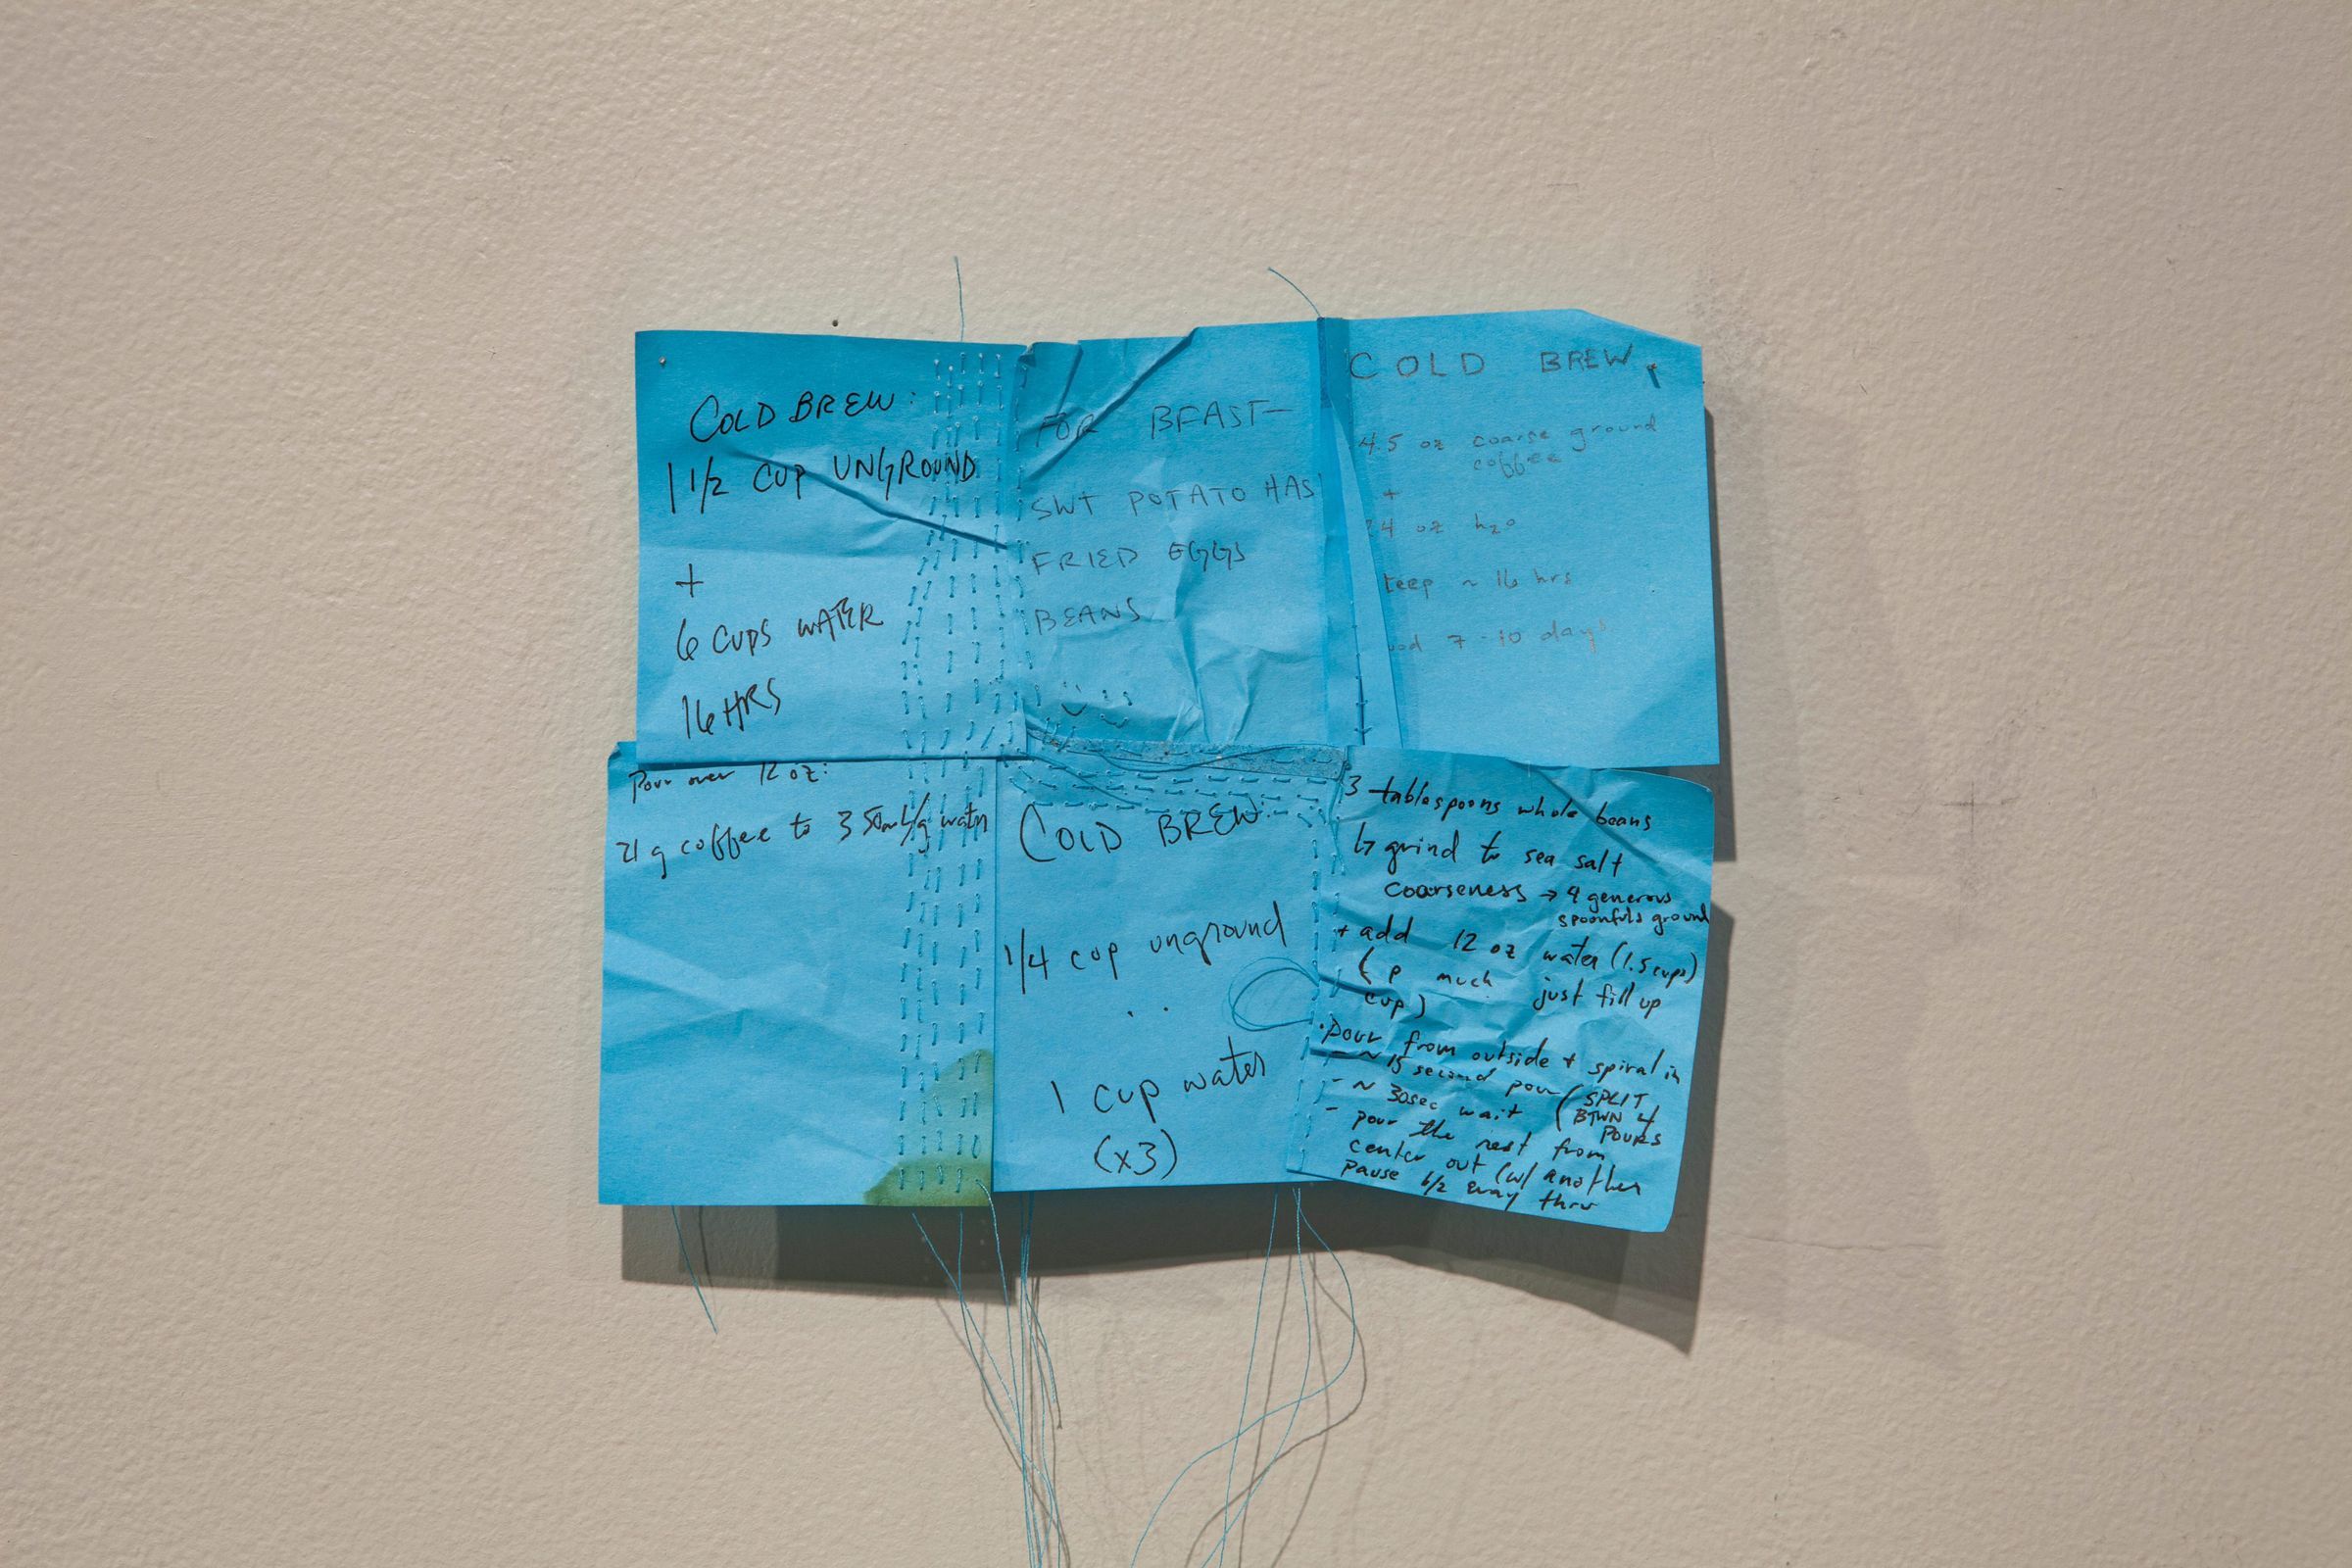 COLD BREW:
1 1/2 CUP UNGROUND
+
6 CUPS WATER
16 HRS
FOR BFAST—
SWT POTATO HAS
FRIED EGGS
BEANS
COLD BREW
4.5 oz coarse ground
coffee
+
4 oz h2o
teep ~ 16 hrs
ood 7-10 days
Pour over 12 oz:
21 g coffee to 350mL/g water
COLD BREW:
1/4 cup unground
: 
1 cup water
(x3)
3 tablespoons whole beans
↳ grind to sea salt
coarseness → 4 generous
spoonfuls ground
+ add 12 oz water (1.5 cups)
(p much just fill up
cup)
• pour from outside + spiral in
- ~ 15 second pour (SPLIT
- ~ 30sec wait BTWN 4
- pour the rest from POURS
center out (w/ another
pause 1/2 way thru